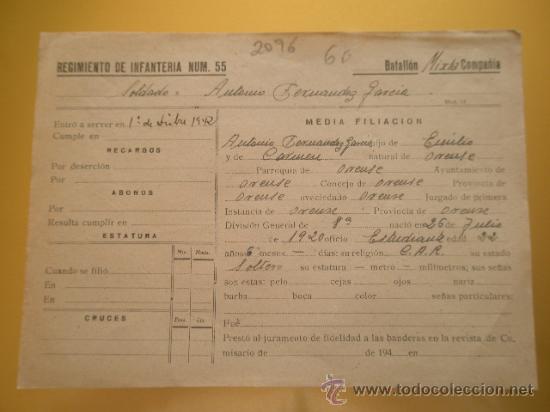 2096 60
REGIMIENTO DE INFANTERIA NUM. 55 Batallón Mixto Compañía
Soldado - Antonio Fernandez Garcia
Entró a servir en 1º de Dicbre 1942 MEDIA FILIACION
Cumple en Antonio Fernandez Garcia hijo de Emilio
RECARGOS y de Carmen natural de Orense
Por deserción Parroquia de Orense Ayuntamiento de
Orense Concejo de Orense Provincia de
ABONOS Orense avecindado Orense Juzgado de primera
Por Instancia de Orense Provincia de Orense
Resulta cumplir en División General de 8ª nació en 26 de Julio
ESTATURA de 1920 oficio Estudiante edad 22
Mts. Mms. años 5 meses — días; su religión C.A.R. su estado
Cuando se filió Soltero su estatura — metro — milímetros; sus señas
En son estas: pelo cejas ojos nariz
En barba boca color señas particulares:
CRUCES Pens. Sin.
Fué
Prestó el juramento de fidelidad a las banderas en la revista de Co-
misario de de 194 en
www.todocoleccion.net